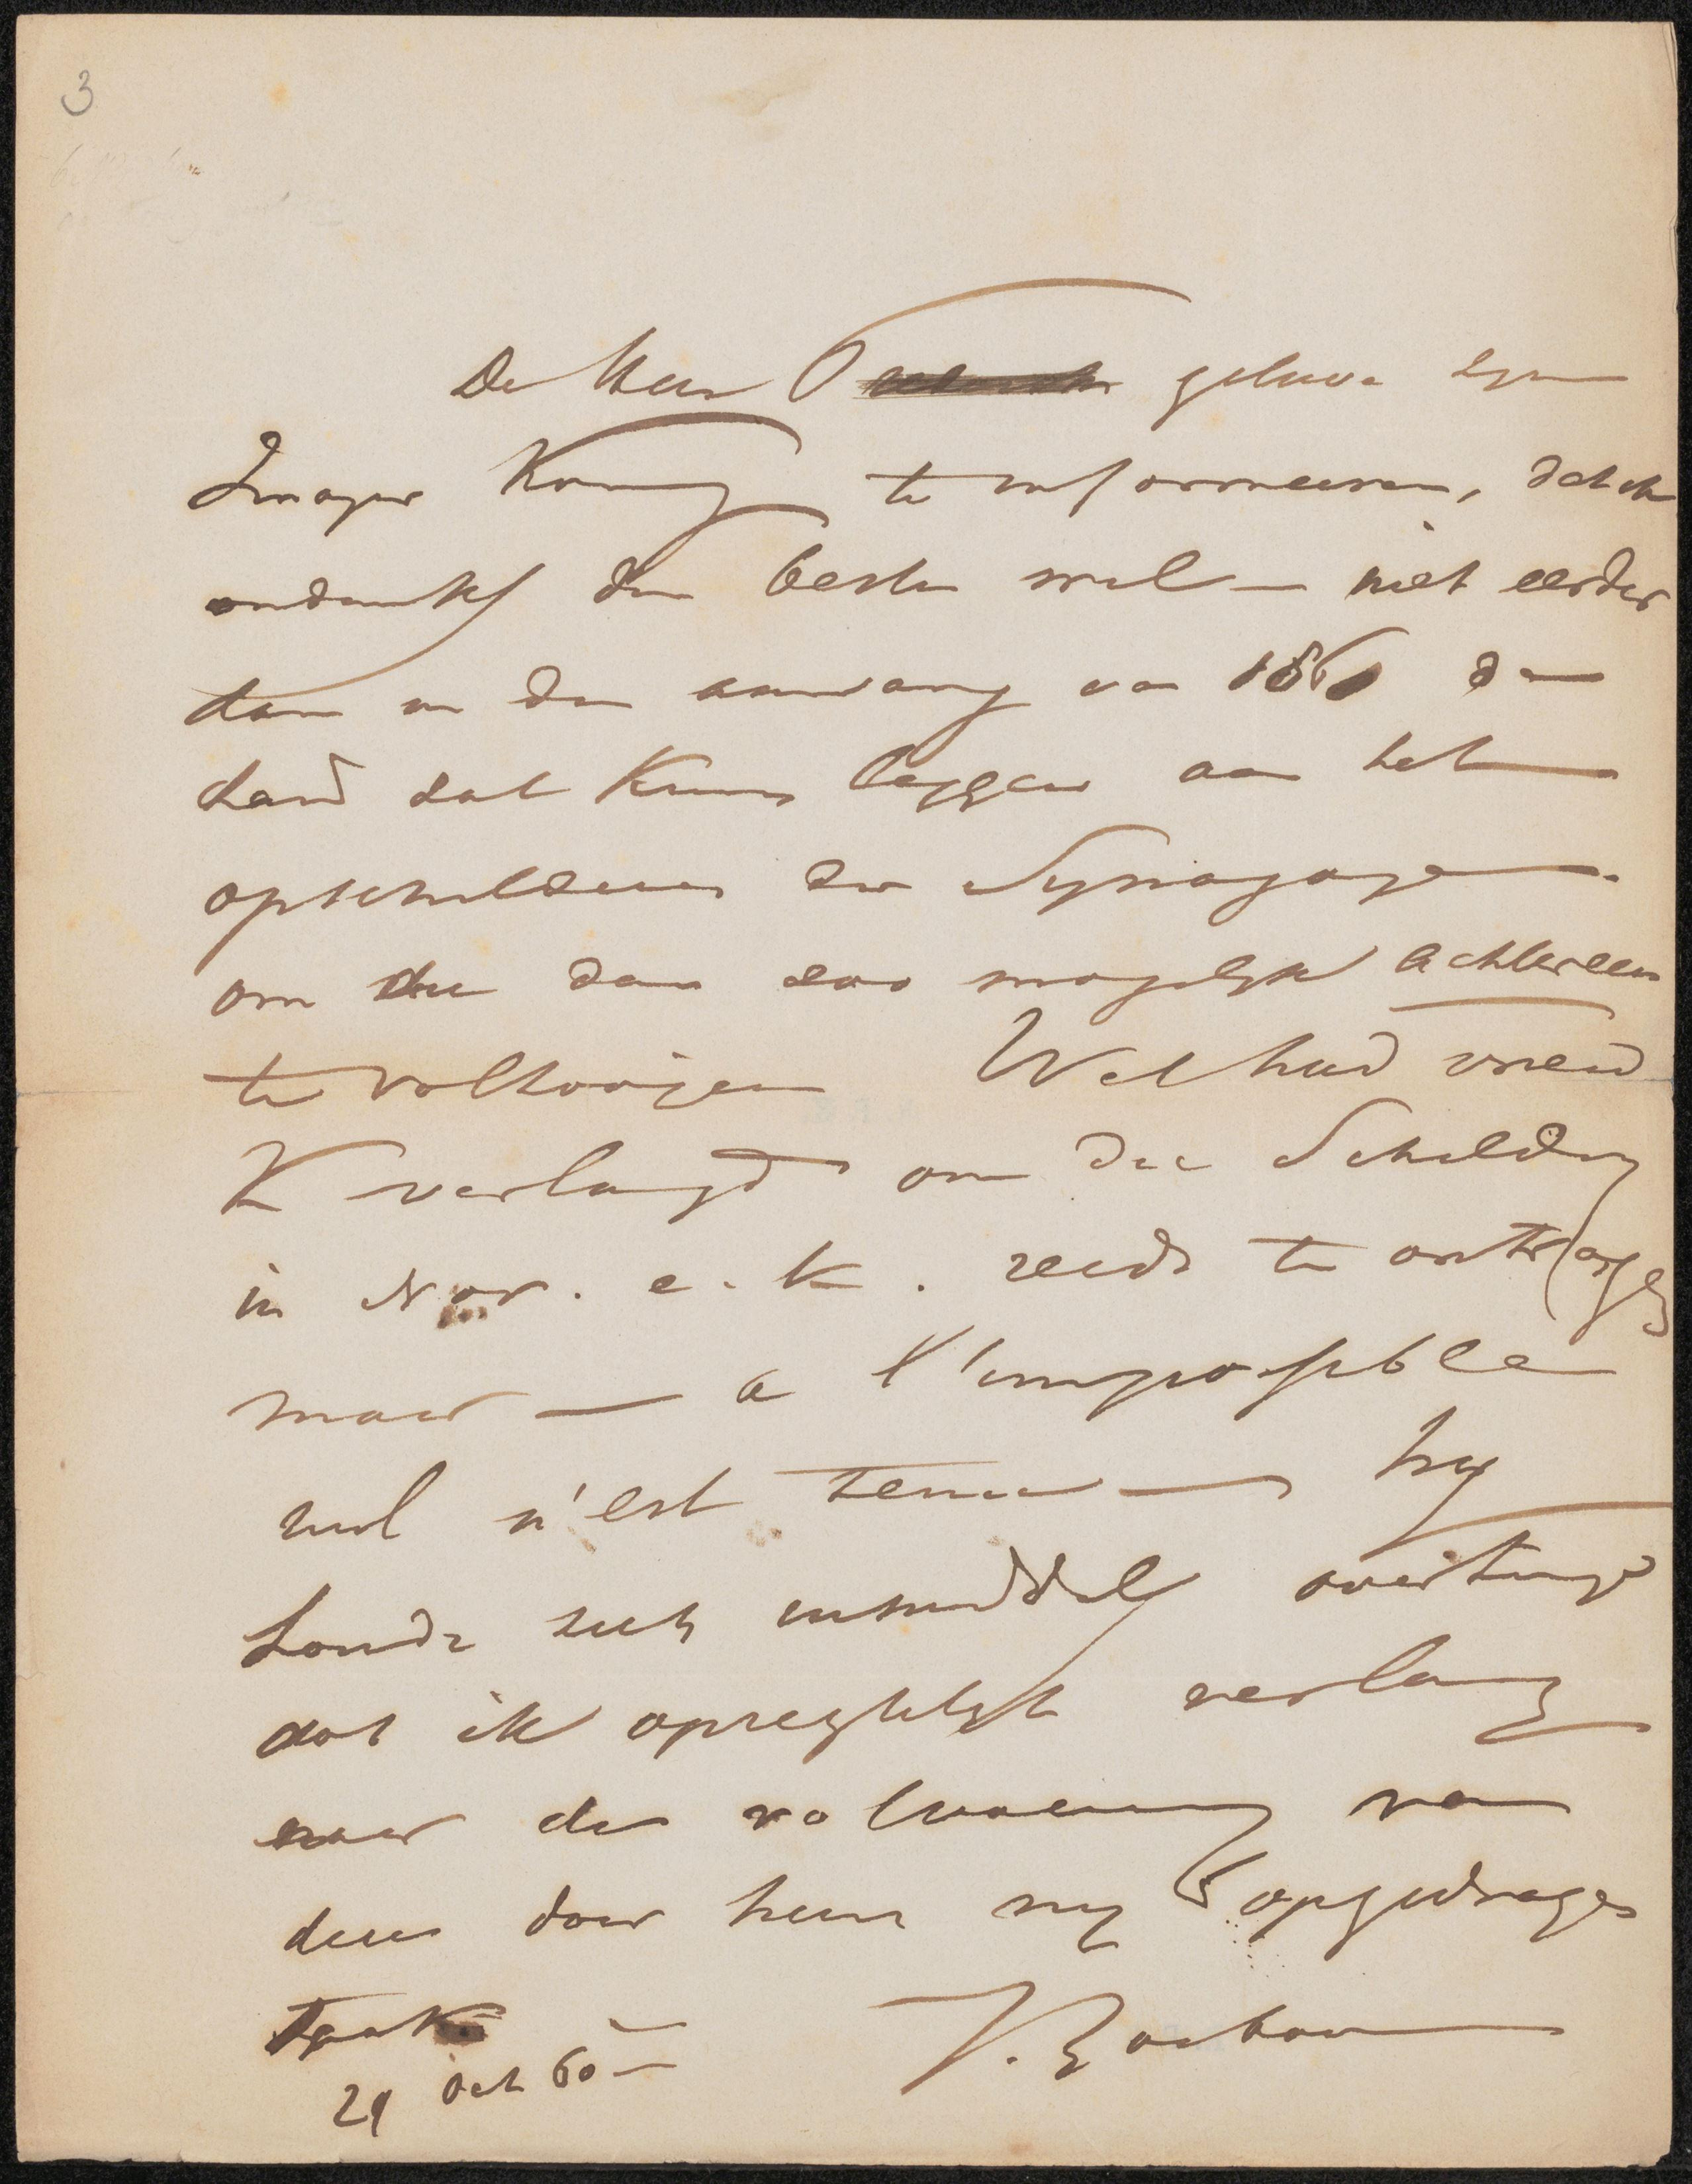 3
De Heer gelieve zyn
Zwager Koning te informeeren, dat ik
ondanks den besten wil — niet eerder
dan in den aanvang van 1861 de
hand dat kunnen leggen aan het
opschilderen der Synagoge
om die dan zoo mogelyk achtereen
te voltooijen Wel had vriend
K verlangd om die Schildery
in Nov. e. k. reeds te ontvangen
maar — a l'impossible
nul n'est tenu — hy
houde zich inmiddels overtuigd
dat ik opregtelyk verlang
naar de voltooiing van
deze door hem my opgedragen
taak
J. Bosboom
29 Oct 60 —